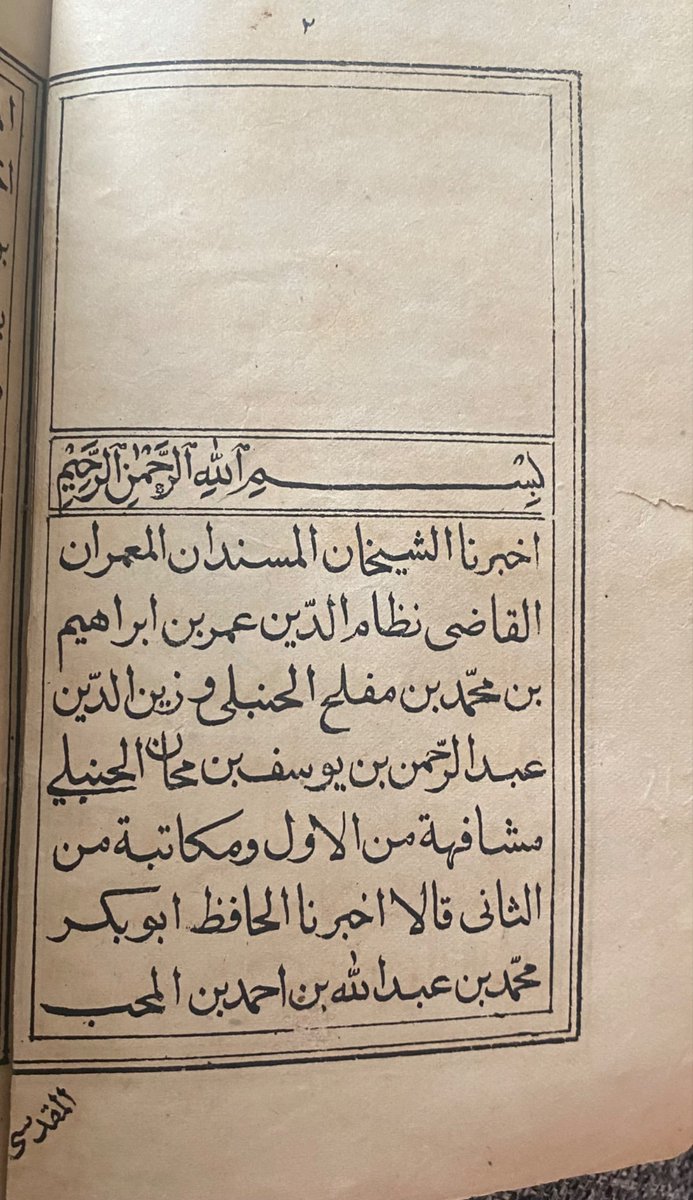 ٢
بِسْمِ ٱللَّهِ ٱلرَّحْمٰنِ ٱلرَّحِيْمِ
اخبرنا الشيخان المسندان المعمران
القاضى نظام الدّين عمر بن ابراهيم
بن محمّد بن مفلح الحنبلى و زين الدّين
عبد الرّحمن بن يوسف بن محان الحنبلي
مشافهة من الاول ومكاتبة من
الثانى قالا اخبرنا الحافظ ابو بكر
محمّد بن عبد الله بن احمد بن المحب
المقدسى